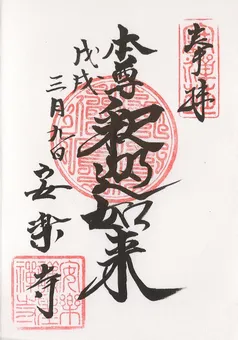 奉拝
本尊
釈迦如来
戊戌
三月九日
安楽寺